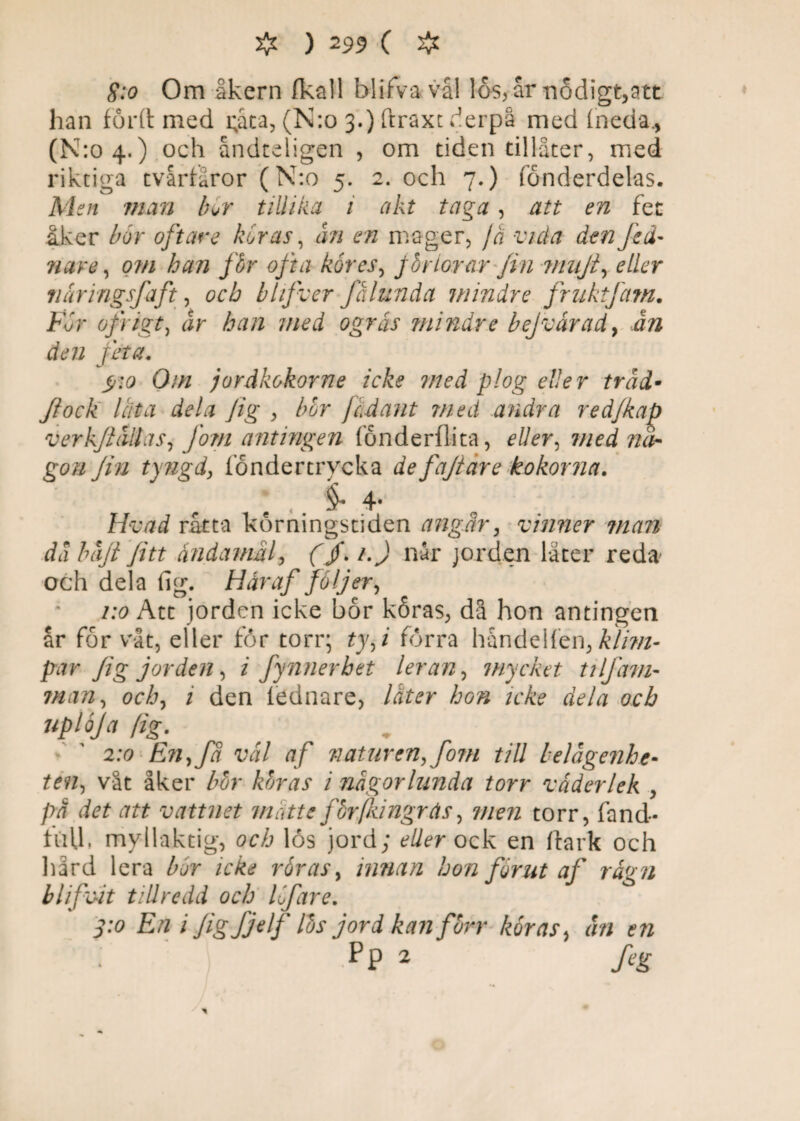 ☆ ) 299 ( ☆
8:o Om åkern ſkall blifva väl lös, år nödigt, att
han förſt med råta, (N:o 3.) ſtraxt derpå med ſneda,
(N:o 4.) och åndteligen , om tiden tillåter, med
riktiga tvårfåror (N:o 5. 2. och 7.) ſönderdelas.
Men man bör tillika i akt taga, att en fet
åker bör oftare köras, ån en mager, ſå vida den ſed-
nare, om han för ofta köres, förlorar ſin muſt, eller
näringsſaft, och blifver ſålunda mindre fruktſam.
För öfrigt, år han med ogrås mindre beſvårad, ån
den feta.
9:o Om jordkokorne icke med plog eller tråd-
ſtock låta dela ſig , bör ſådant med andra redſkap
verkſtållas, ſom antingen ſönderſlita, eller, med nå-
gon ſin tyngd, ſöndertrycka de faſtare kokorna.
§. 4.
Hvad råtta körningstiden angår, vinner man
då båſt ſitt åndamål, (§. 1.) når jorden låter reda
och dela ſig. Håraf följer,
1:o Att jorden icke bör köras, då hon antingen
år för våt, eller för torr; ty, i förra håndelſen, klim-
par ſig jorden, i ſynnerhet leran, mycket tilſam-
man, och, i den ſednare, låter hon icke dela och
uplöja ſig.
2:o En, ſå vål af naturen, ſom till belågenhe-
ten, våt åker bör köras i någorlunda torr våderlek ,
på det att vattnet måtte förſkingrås, men torr, ſand-
full, myllaktig, och lös jord; eller ock en ſtark och
hård lera bör icke röras, innan hon förut af rågn
blifvit tillredd och löſare.
3:o En i ſig ſjelf lös jord kan förr köras, ån en
Pp 2 ſeg